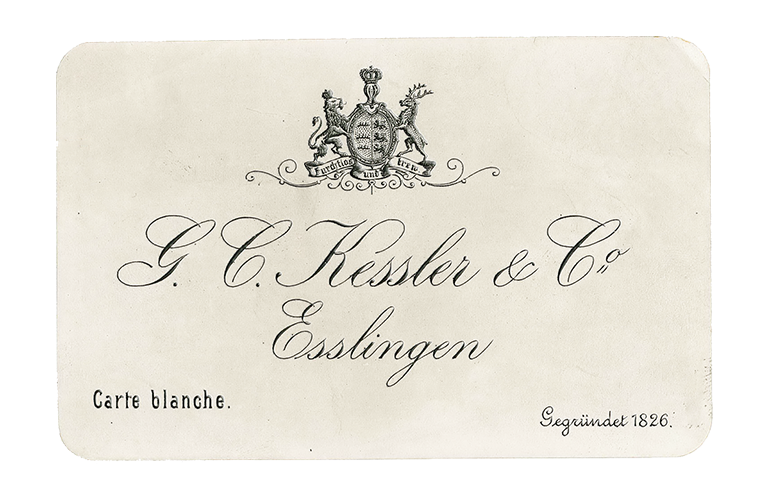 Furchtlos und trew
G. C. Kessler & Co
Esslingen
Carte blanche.
Gegründet 1826.